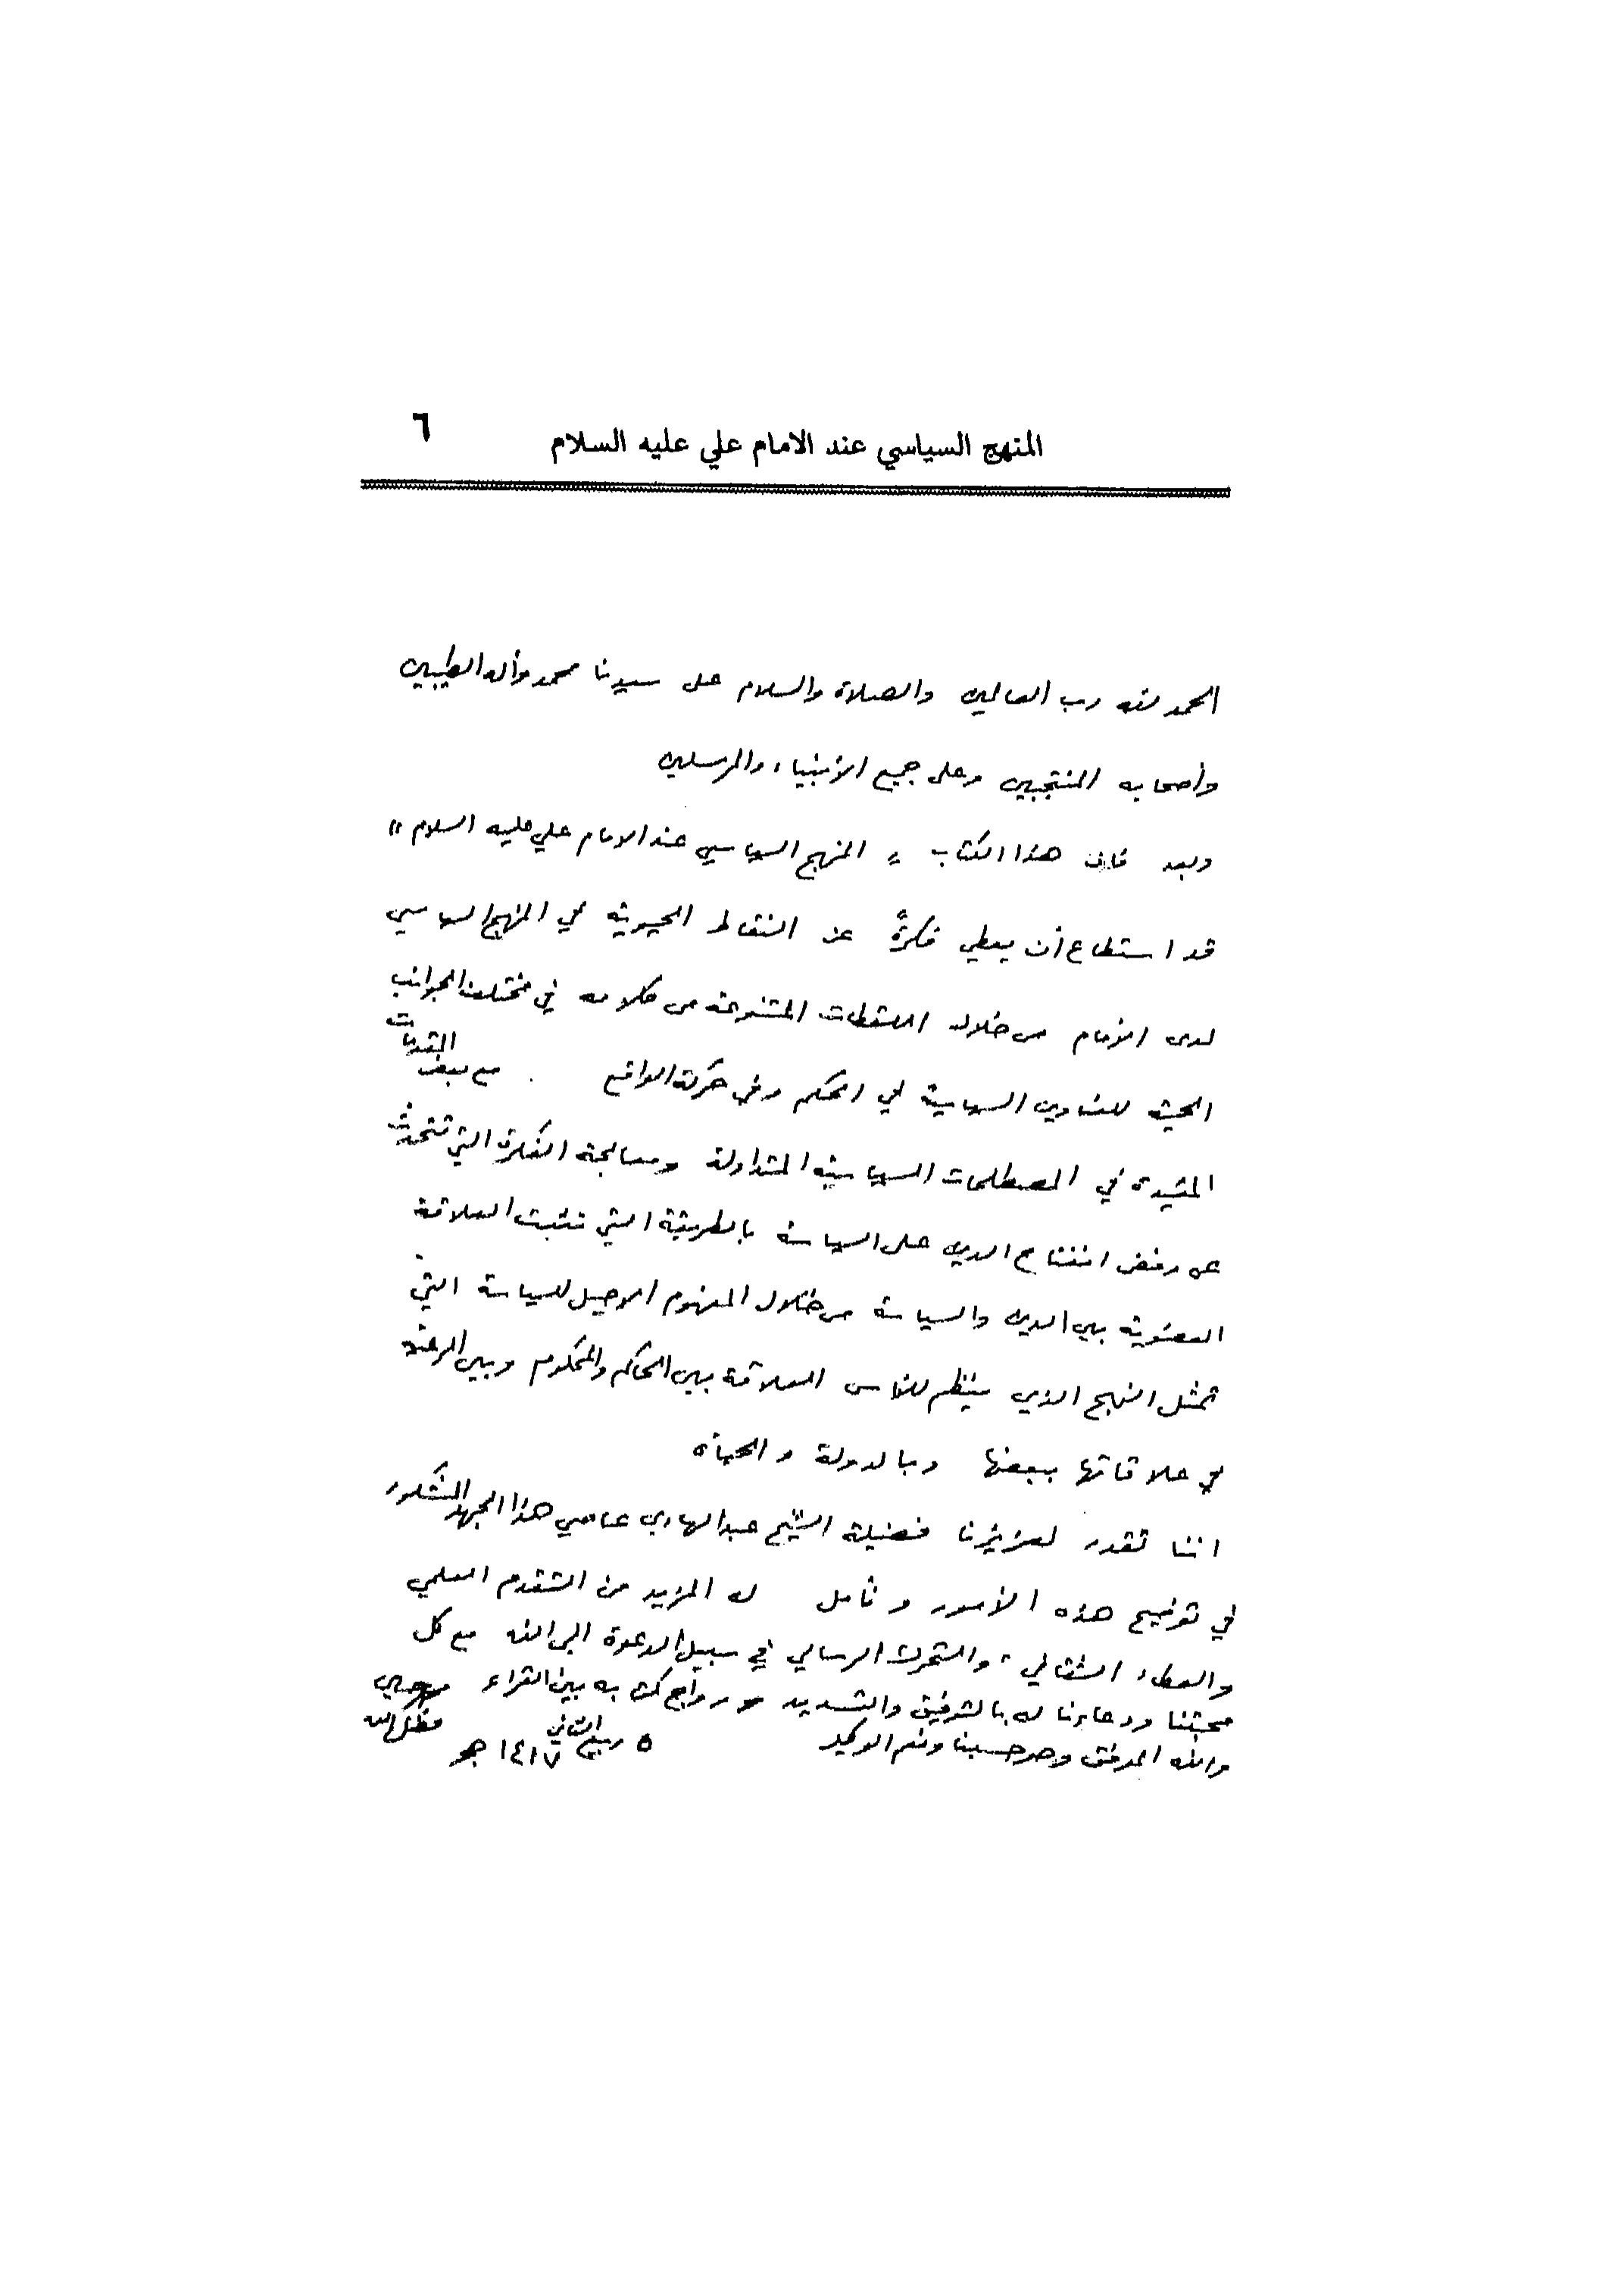 ٦
المنهج السياسي عند الامام علي عليه السلام
الحمد لله رب العالمين والصلاة والسلام على سيدنا محمد وآله الطيبين
وأصحابه المنتجبين وعلى جميع الأنبياء والمرسلين
وبعد فان هذا الكتاب " المنهج السياسي عند الامام علي عليه السلام "
قد استطاع أن يعطي فكرةً عن النقاط الحيوية في المنهج السياسي
لدى الإمام من خلال اللقطات المتنوعة من كلامه في مختلف الجوانب
الحية للعناوين السياسية في الحكم وفي حركة الواقع مع بعض المقدمات
المفيدة في المصطلحات السياسية المتداولة ومعالجة الفكرة التي تتحدث
عن رفض انفتاح الدين على السياسة بالطريقة التي تثبت العلاقة
العضوية بين الدين والسياسة من خلال المفهوم الاصيل للسياسة التي
تمثل النهج الذي ينظم للناس العلاقة بين الحاكم والمحكوم وبين الرعية
في علاقاتها ببعضها وبالدولة والحياة
اننا نقدر لعزيزنا فضيلة الشيخ عبد الهادي عاصي هذا الجهد المشكور
في توضيح هذه الأمور ونأمل له المزيد من التقدم العلمي
والعطاء الثقافي، والتحرك الرسالي في سبيل الدعوة الى الله مع كل
محبتنا ودعائنا له بالتوفيق والتسديد ورواج كتابه بين القراء
والله الموفق وهو حسبنا ونعم الوكيل
٥ ربيع الثاني ١٤١٧ هـ
فضل الله